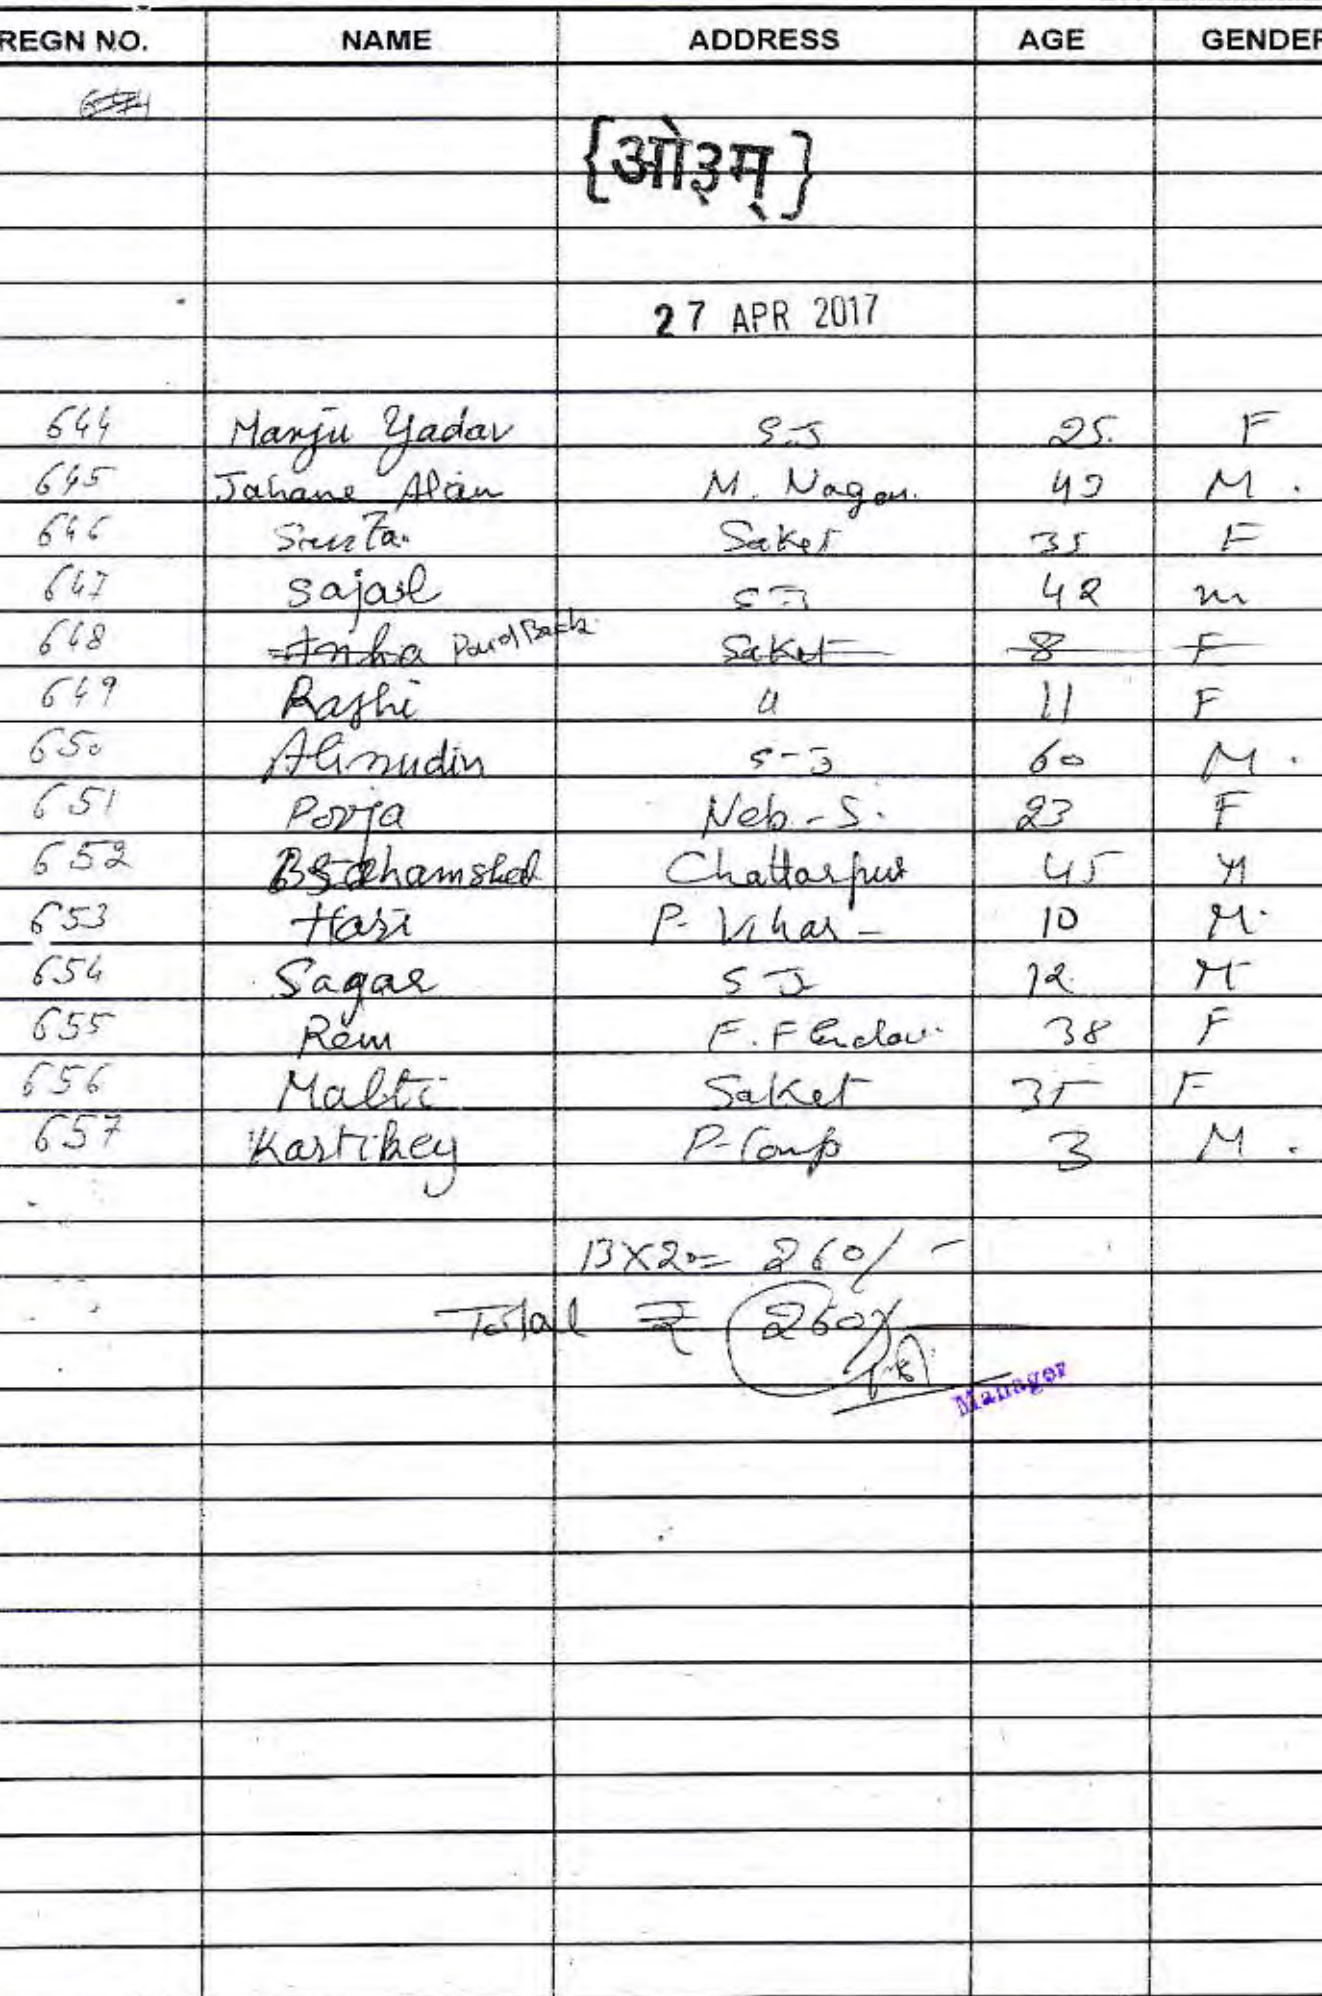 REGN NO. NAME ADDRESS AGE GENDER
{ओ३म्}
27 APR 2017
644 Manju Yadav S-J 25. F
645 Jahane Alam M. Nagar. 49 M.
646 Sunita. Saket 35 F
647 Sajal S-J 42 m
648 Paid Back Saket 8 F
649 Rashi " 11 F
650 Alimudin S-J 60 M.
651 Pooja Neb-S. 23 F
652 Chattarpur 45 M
653 Hari P- Vihar- 10 M.
654 Sagar S J 12. M
655 F. F 38 F
656 Malti Saket 35 F
657 Kartikey P-Comp 3 M.
13X20= 260/-
Total ₹ 260/
Manager